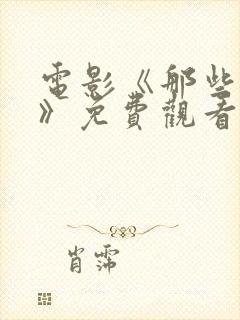 電影《那些
》免費觀看
肖霈